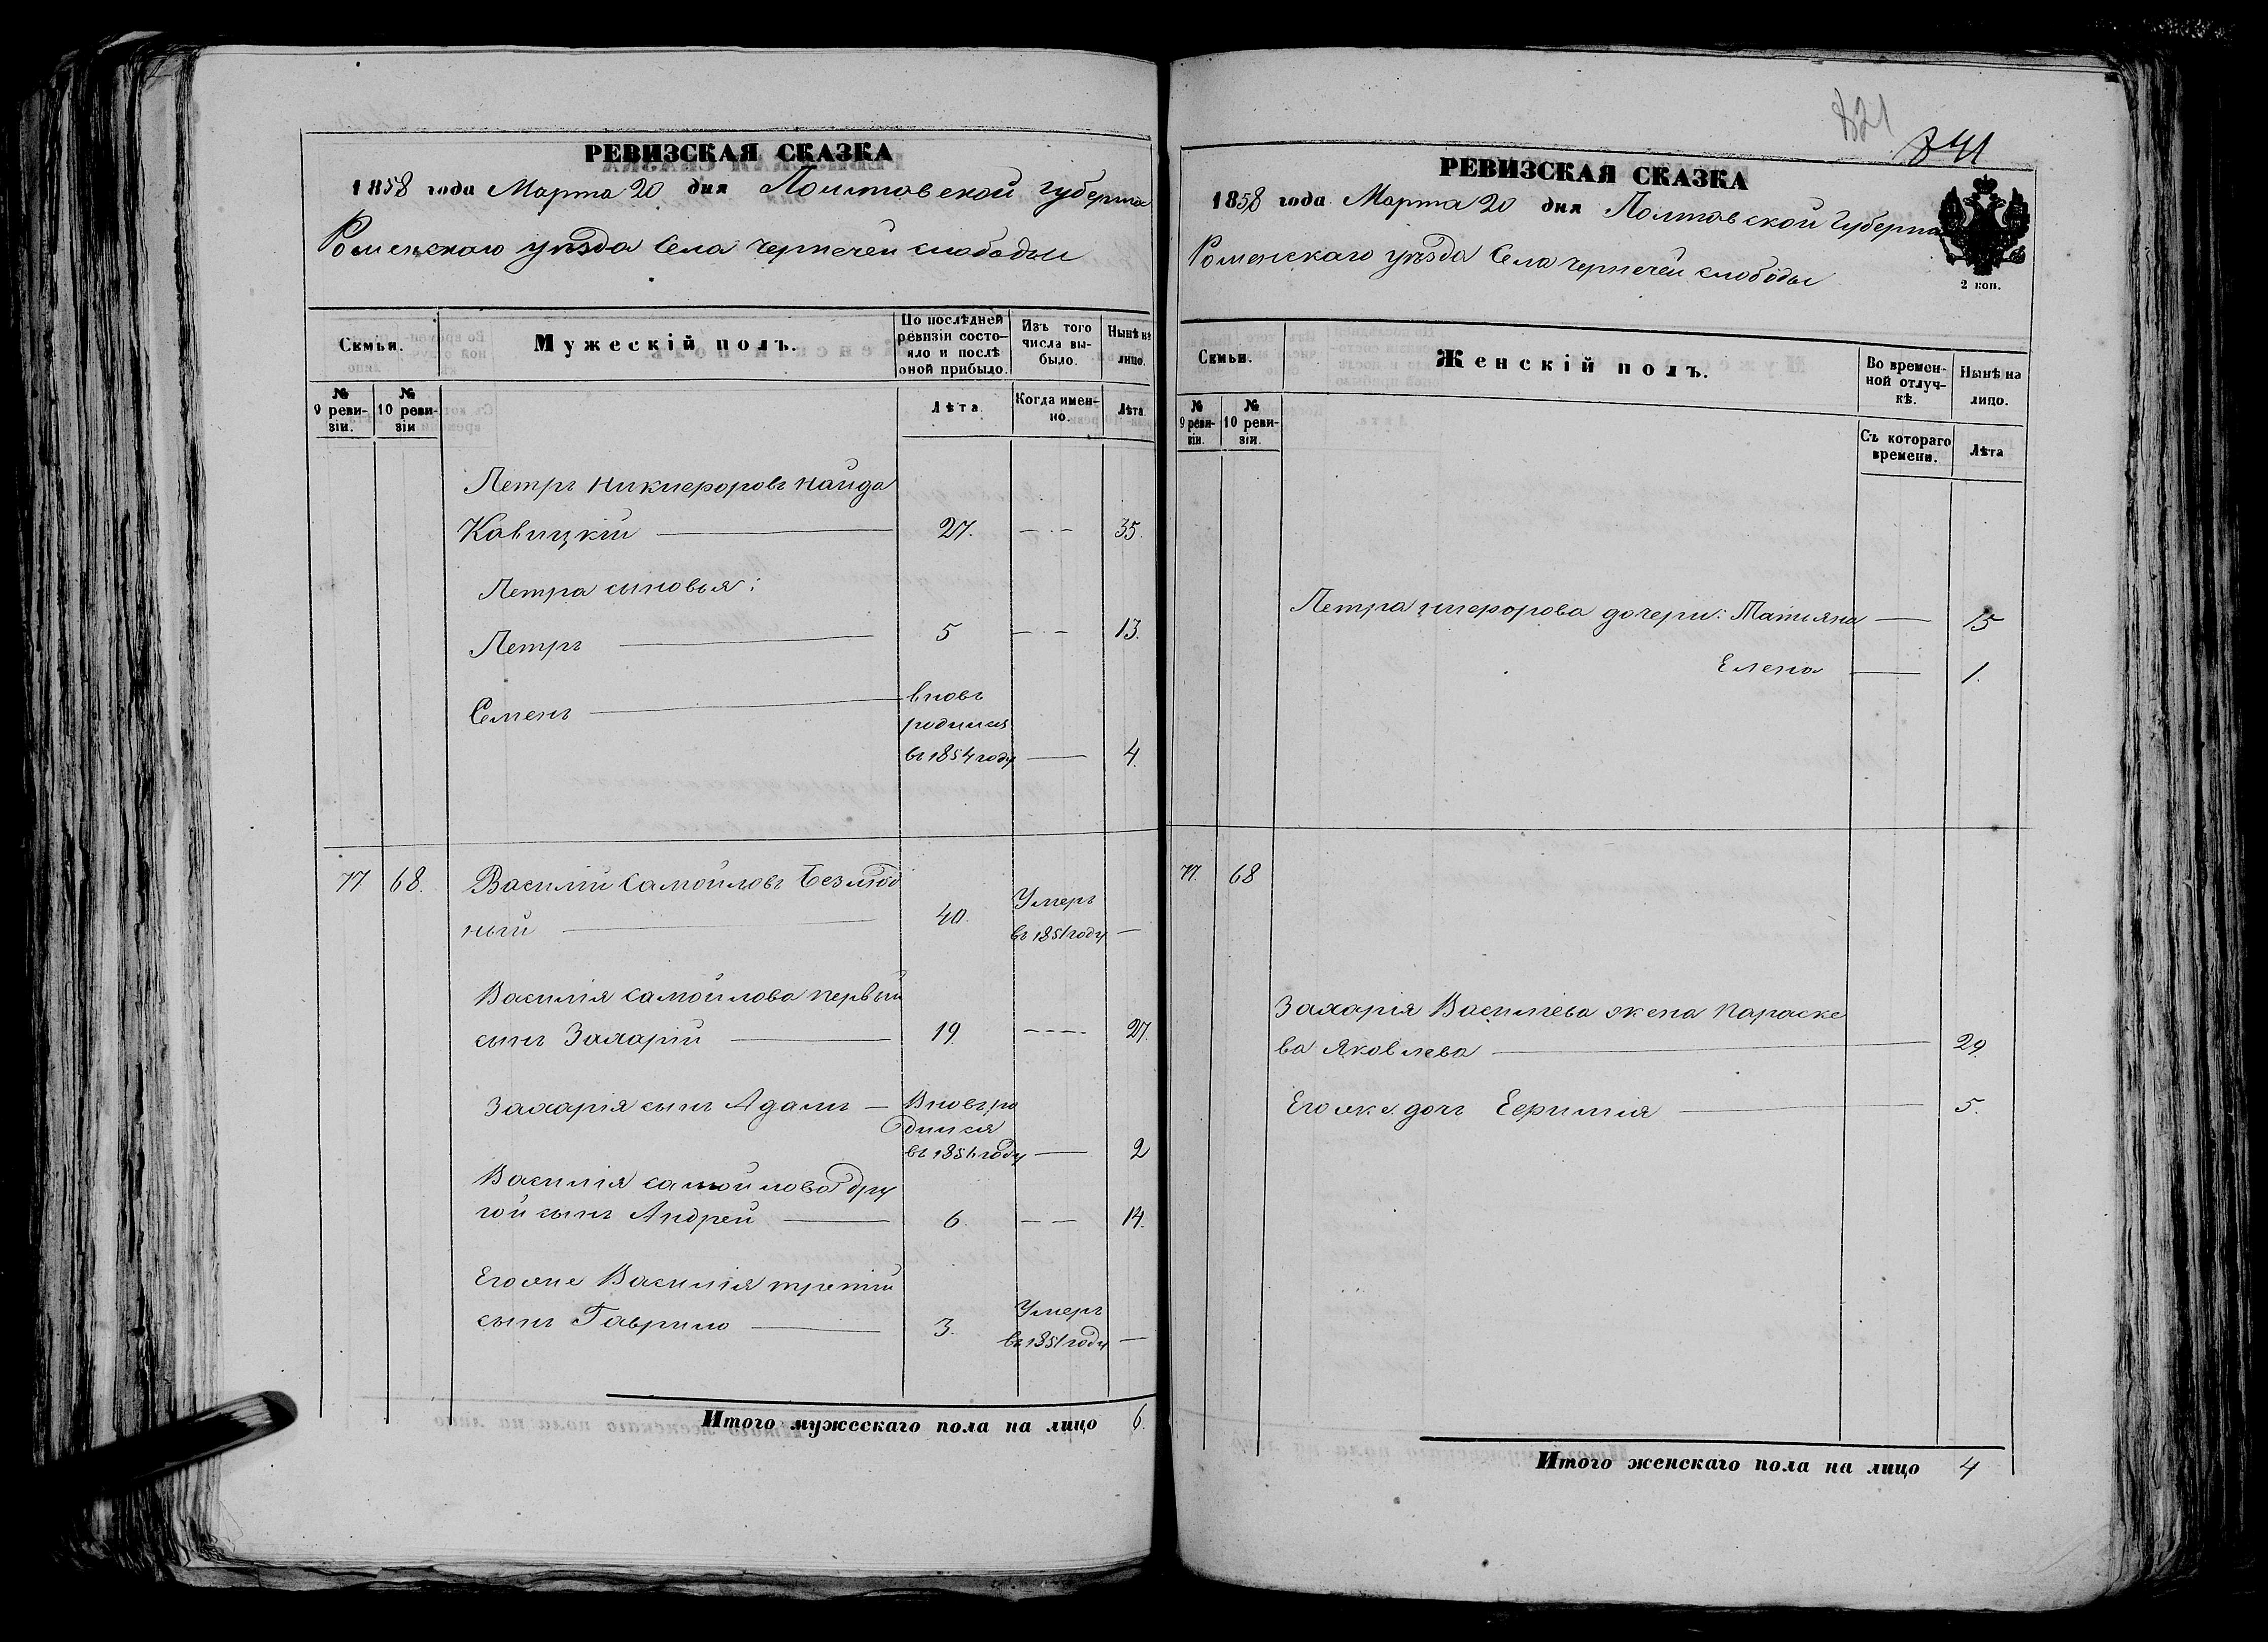 РЕВИЗСКАЯ СКАЗКА
1858 года Марта 20 дня Полтавской губернiи
Роменскаго уѣзда Села Чернечей слободы
Семьи.
Мужескій полъ.
По послѣдней ревизіи состояло и послѣ оной прибыло.
Изъ того числа выбыло.
Нынѣ на лицо.
№ 9 ревизіи.
№ 10 ревизіи
Лѣта.
Когда именно.
Лѣта.
Петръ Никифоровъ Найда
Кавицкій 27. 35.
Петра сыновья:
Петръ 5 13.
Семенъ вновь
родился
въ 1854 году 4.
77 68. Василій Самойловъ Безлюд
ный 40. Умеръ
въ 1851 году
Василія Самойлова первый
сынъ Захарій 19. 27.
Захарія сынъ Адамъ Вновь ро
дился
въ 1856 году 2
Василія Самойлова дру
гой сынъ Андрей 6. 14.
Его же Василія третій
сынъ Гаврило 3. Умеръ
въ 1851 году
Итого мужескаго пола на лицо 6.
821
841
РЕВИЗСКАЯ СКАЗКА
1858 года Марта 20 дня Полтавской Губерни
Роменскаго уѣзда Села Чернечей слободы
2 коп.
Семьи.
Женскій полъ.
Во временной отлучкѣ.
Нынѣ на лицо.
№ 9 ревизіи.
№ 10 ревизіи.
Съ котораго времени.
Лѣта
Петра Никифорова дочери: Татіяна 15
Елена 1.
77. 68
Захарія Василіева жена Параске
ва Яковлева 29.
Его же дочь Ефимія 5.
Итого женскаго пола на лицо 4